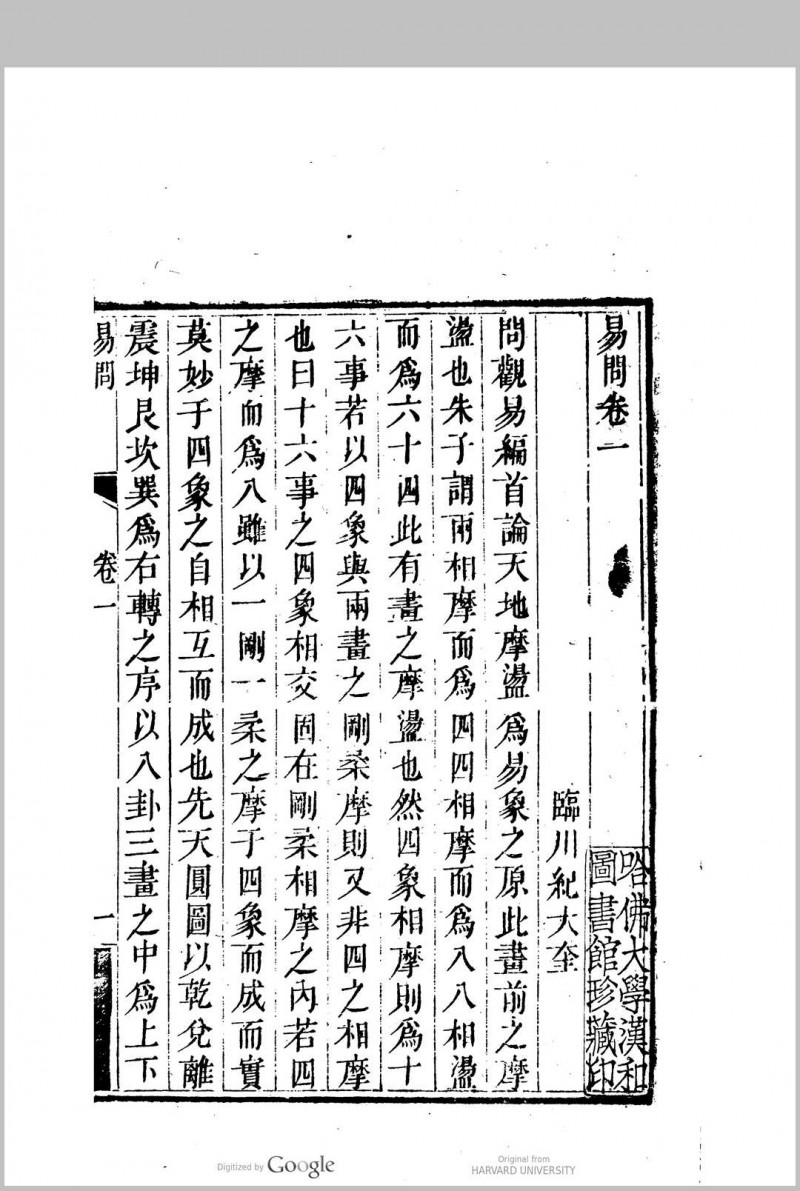 易問卷一
臨川紀大奎
問觀易編首論天地摩盪爲易象之原此畫前之摩
盪也朱子謂兩相摩而爲四四相摩而爲八八相盪
而爲六十四此有畫之摩盪也然四象相摩則爲十
六事若以四象與兩畫之剛柔摩則又非四之相摩
也曰十六事之四象相交固在剛柔相摩之內若四
之摩而爲八雖以一剛一柔之摩于四象而成而實
莫妙于四象之自相互而成也先天圓圖以乾兌離
震坤艮坎巽爲右轉之序以八卦三畫之中爲上下
易問 卷一 一
哈佛大學漢和
圖書館珍藏印
Digitized by Google
Original from
HARVARD UNIVERSITY